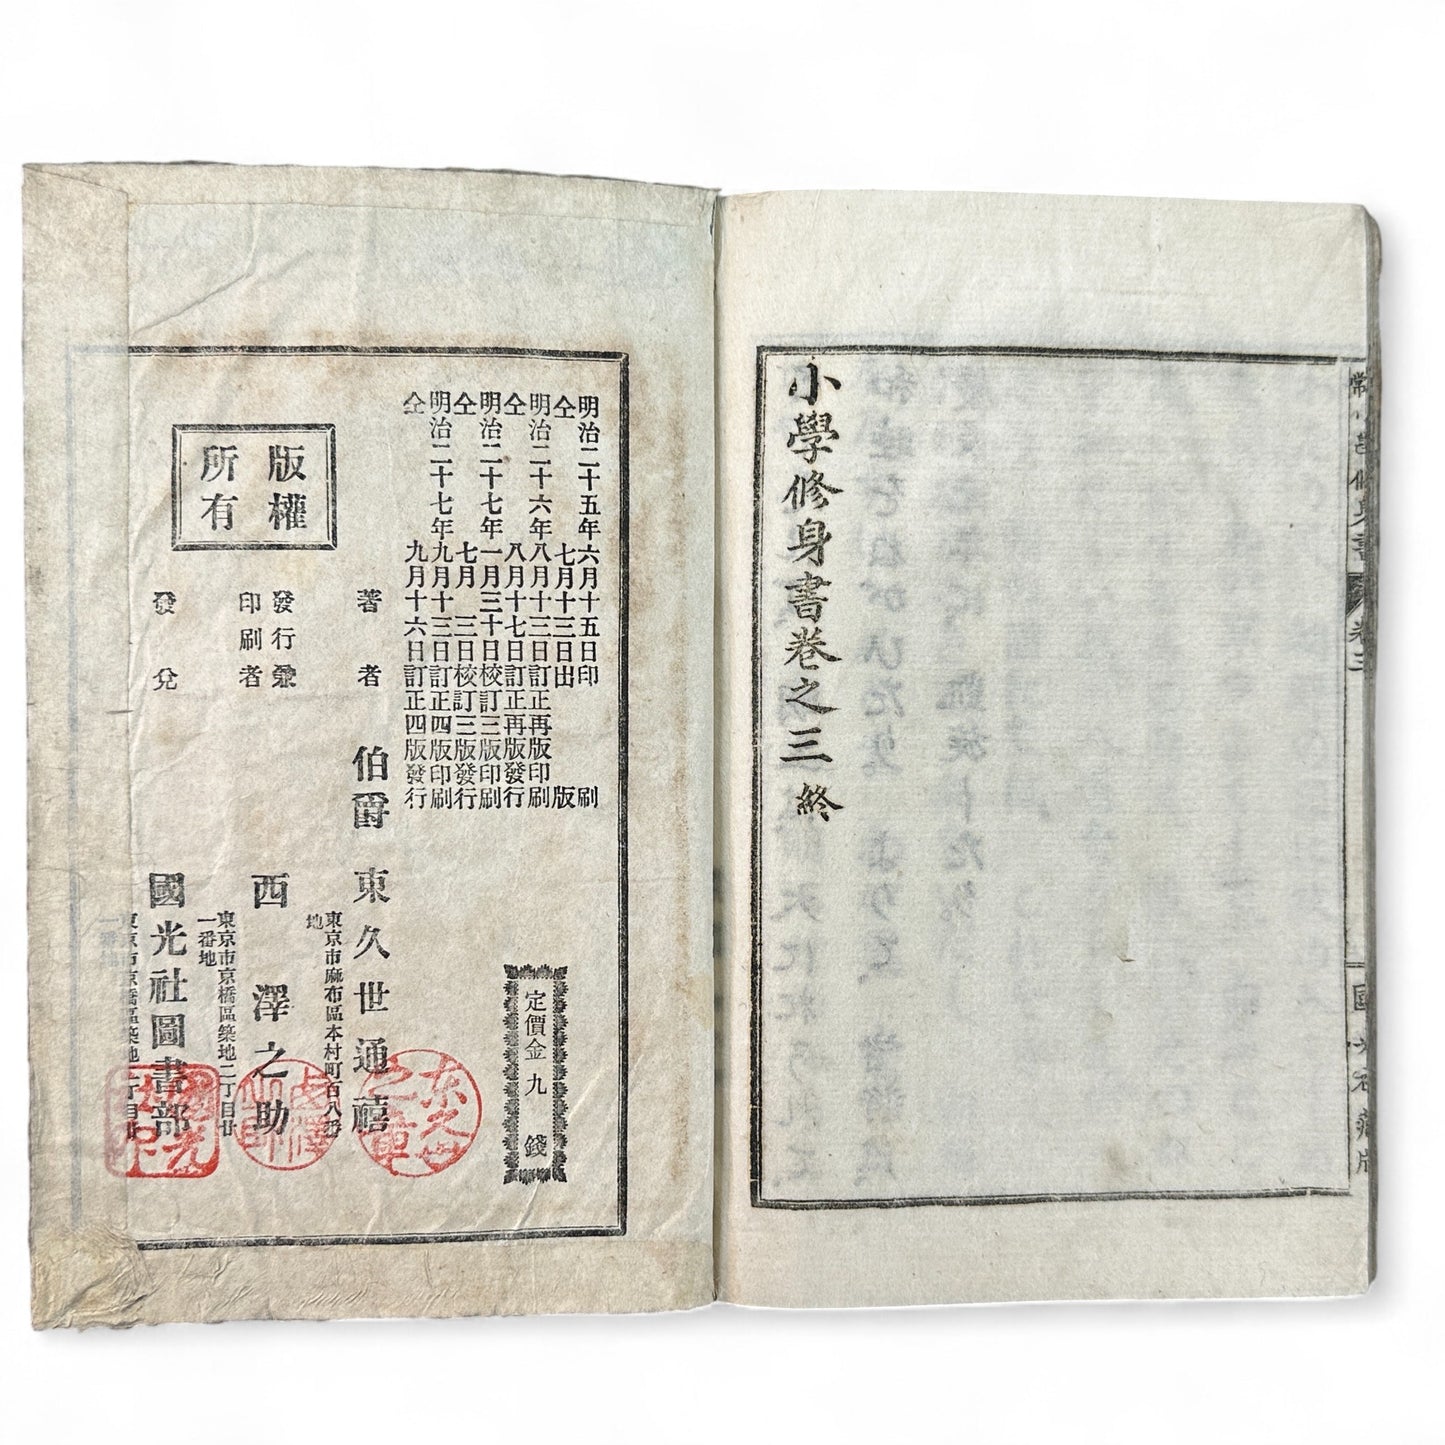 小學修身書卷之三終
明治二十五年六月十五日印刷
仝七月十三日出版
明治二十六年八月十三日訂正再版印刷
仝八月十七日訂正再版發行
明治二十七年一月三十日校訂三版印刷
仝七月三日校訂三版發行
明治二十七年九月十三日訂正四版印刷
仝九月十六日訂正四版發行
定價金九錢
著者 伯爵 東久世通禧
東京市麻布區本村町百八番地
發行兼印刷者 西澤之助
東京市京橋區築地二丁目廿一番地
發兌 國光社圖書部
東京市京橋區築地二丁目廿一番地
版權所有